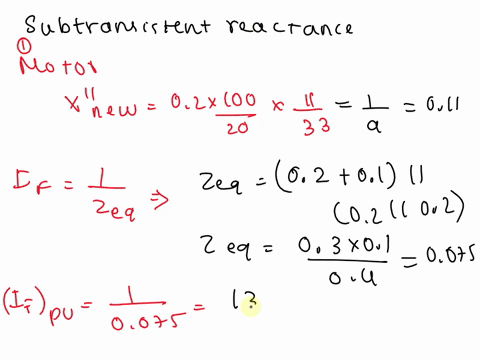 Subtransistent reactance
①
Motor
X"new = 0.2 × 100/20 × 11/33 = 1/9 = 0.11
IF = 1/Zeq ⇒ Zeq = (0.2 + 0.1) ||
(0.2 || 0.2)
Zeq = 0.3 × 0.1/0.4 = 0.075
(IF)pu = 1/0.075 = 13